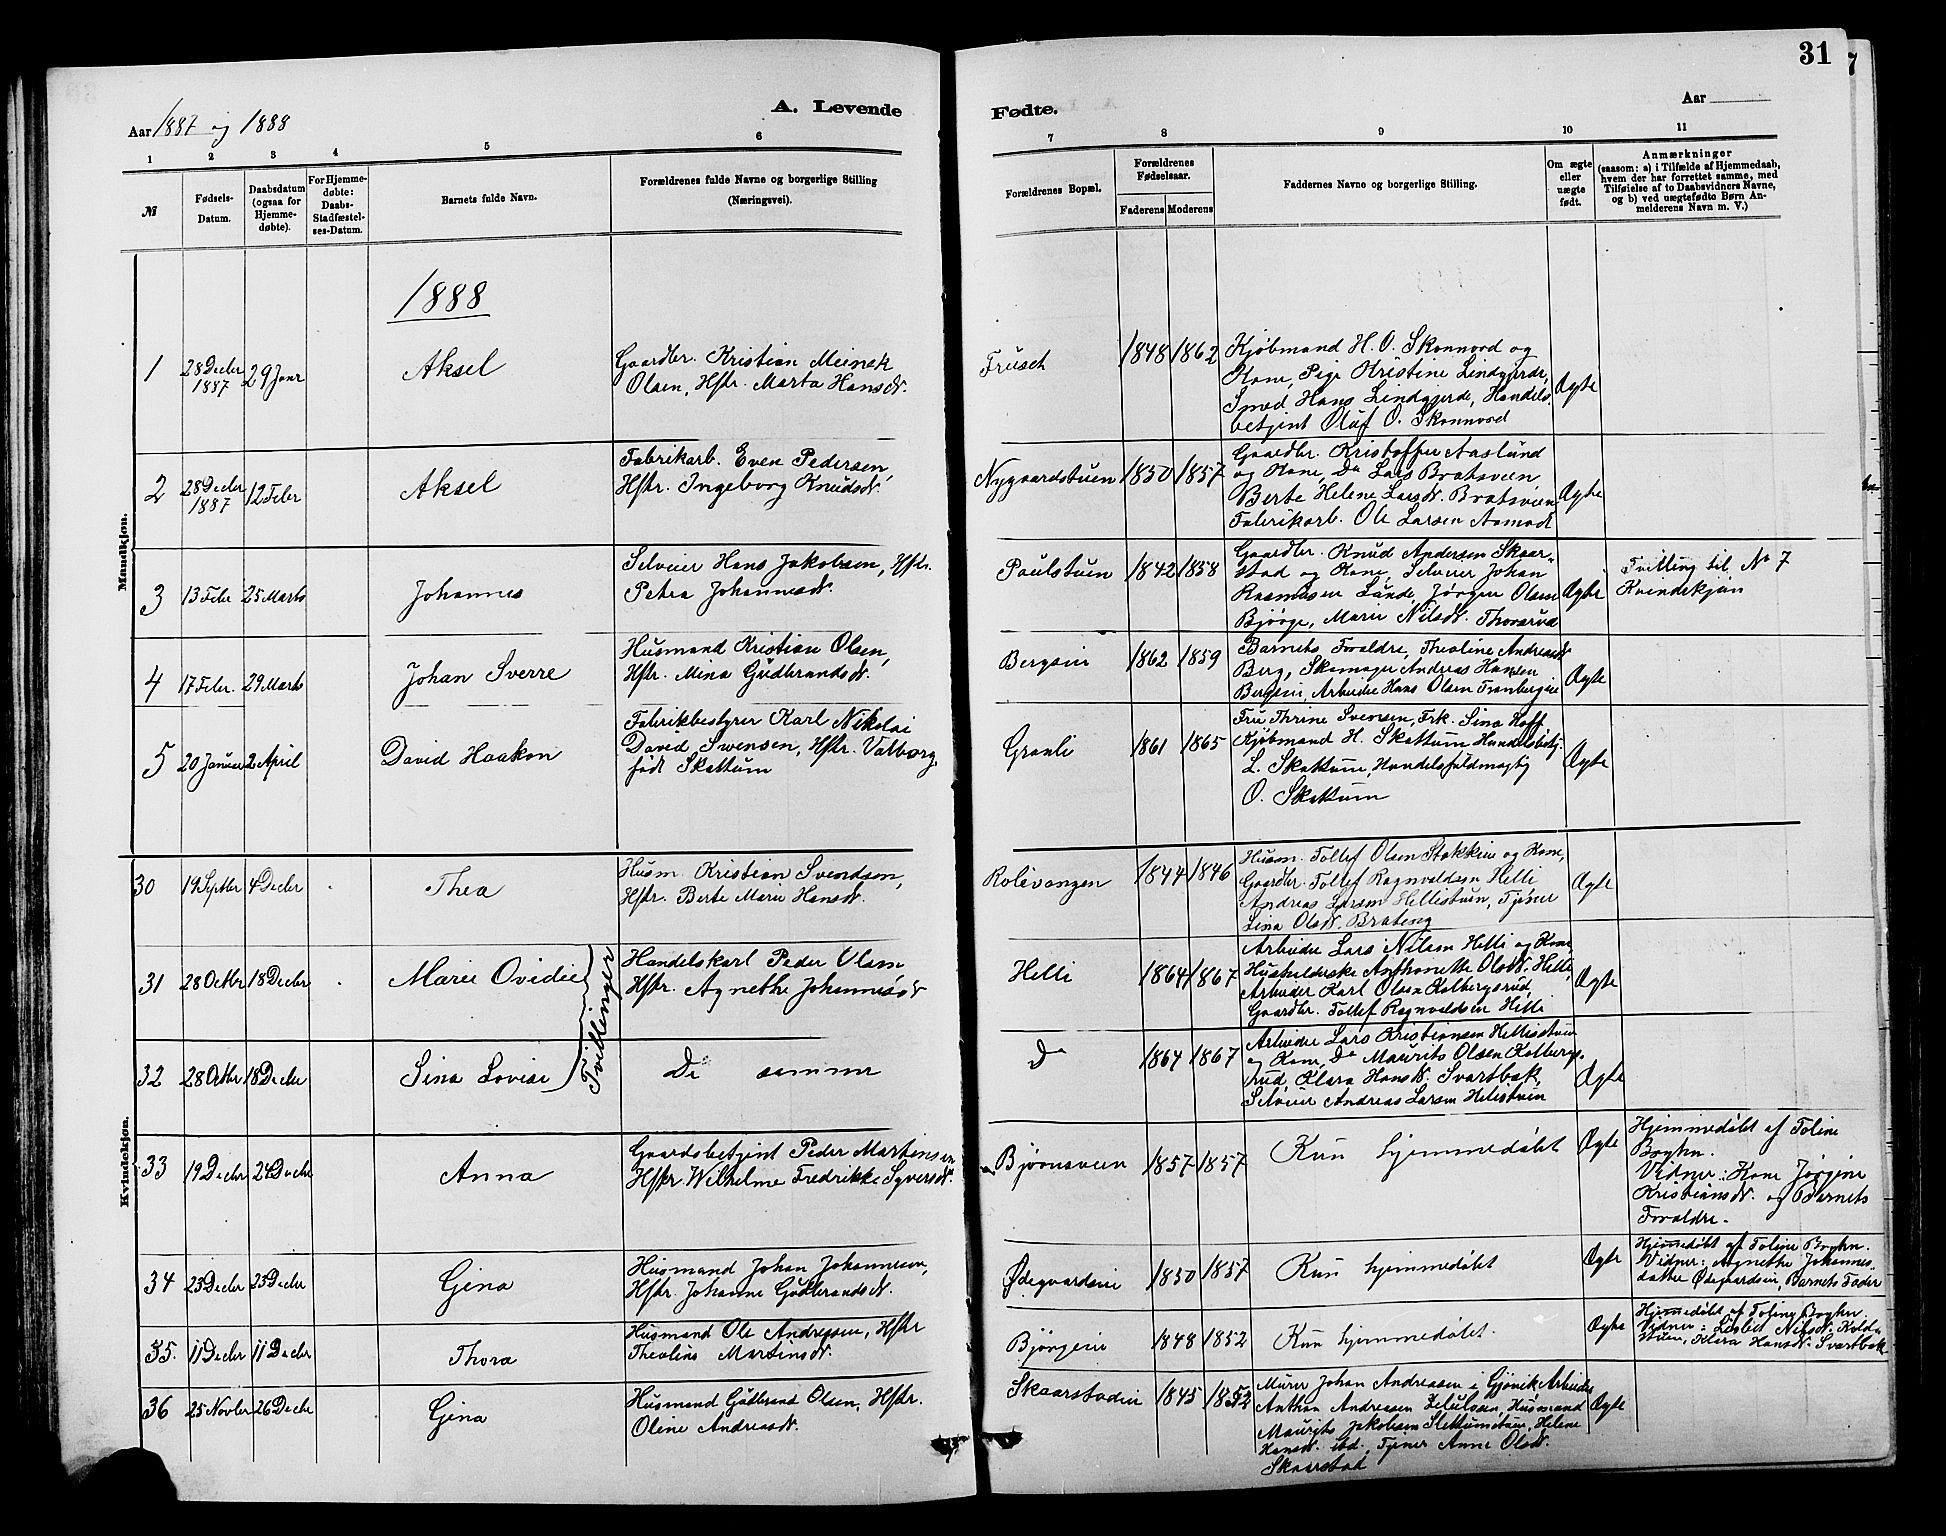 31
Aar 1887 og 1888
A. Levende Fødte.
Aar
1 2 3 4 5 6 7 8 9 10 11
№
Fødsels-Datum.
Daabsdatum (ogsaa for Hjemmedøbte).
For Hjemmedøbte: Daabs-Stadfæstelses-Datum.
Barnets fulde Navn.
Forældrenes fulde Navne og borgerlige Stilling (Næringsvei).
Forældrenes Bopæl.
Forældrenes Fødselsaar.
Faderens Moderens
Faddernes Navne og borgerlige Stilling.
Om ægte eller uægte født.
Anmærkninger
(saasom: a) i Tilfælde af Hjemmedaab, hvem der har forrettet samme, med Tilføielse af to Daabsvidners Navne, og b) ved uægtefødte Børn Anmelderens Navn m. V.)
Mandkjøn.
1888
1 28 Decbr 1887 29 Janr Aksel
Gaardbr. Kristian Meinek
Olsen, Hstr. Marta Hansdr.
Fruset 1848 1862
Kjøbmand H. O. Skonnord og
Kone, Pige Kristine Lindgjerde,
Smed Hans Lindgjerde, Handels
betjent Oluf O. Skonnord
Ægte
2 28 Decbr 1887 12 Febr Aksel
Fabrikarb. Even Pedersen,
Hstr. Ingeborg Knudsdr.
Nygaardstuen 1850 1857
Gaardbr. Kristoffer Aaslund
og Kone, Do Lars Bratsveen,
Berte Helene Larsdr. Bratsveen
Fabrikarb. Ole Larsen Aamodt
Ægte
3 13 Febr 25 Marts Johannes
Selveier Hans Jakobsen, Hstr.
Petra Johannesdr.
Paulstuen 1842 1858
Gaardbr. Knud Andersen Skaar-
stad og Kone, Selveier Johan
Rasmusen Lunde, Jørgen Olsen
Bjørge, Marie Nilsdr. Thorsrud
Ægte
Tvilling til No 7
Kvindekjøn
4 17 Febr. 29 Marts Johan Sverre
Husmand Kristian Olsen,
Hstr. Mina Gudbrandsdr.
Bergseie 1862 1859
Barnets Forældre, Theoline Andreasdr
Berg, Skomager Andreas Hansen
Bergseie, Arbeider Hans Olsen Tranbergeie
Ægte
5 20 Januar 2 April David Haakon
Fabrikbestyrer Karl Nikolai
David Swensen, Hstr. Valborg,
født Skattum
Granli 1861 1865
Fru Thrine Svensen, Frk. Sina Hoff
Kjøbmand H. Skattum Handelsbetj.
L. Skattum, Handelsfuldmægtig
O. Skattum
Ægte
Kvindekjøn.
30 19 Septbr 4 Decbr Thea
Husm. Kristian Svendsen,
Hstr. Berte Marie Hansdr.
Rolivangen 1844 1846
Husm. Tollef Olsen Stokkeie og Kone,
Gaardbr. Tollef Ragnvaldsen Helli
Andreas Larsen Hellistuen, Tjener
Lina Olsdr. Brateng
Ægte
31 28 Octbr 18 Decbr Marie Ovidie
Tvillinger
Handelskarl Peder Olsen
Hstr. Agnethe Johannesdr
Helli 1864 1867
Arbeider Lars Nilsen Helli og Kone,
Husholderske Anthonette Olsdr. Helli,
Arbeider Karl Olsen Kolbergsrud
Gaardbr. Tollef Ragnvaldsen Helli
Ægte
32 28 Octbr 18 Decbr Sina Lovise
De samme
Do 1864 1867
Arbeider Lars Kristiansen Hellisstuen
og Kone, Do Maurits Olsen Kolbergs-
rud, Klara Hansdr. Svartbak,
Selveier Andreas Larsen Hellistuen
Ægte
33 19 Decbr 24 Decbr Anna
Gaardsbetjent Peder Martinsen
Hstr. Wilhelme Fredrikke Syversdr.
Bjørnsveen 1857 1857
Kun hjemmedøbt
Ægte
Hjemmedøbt af Toline
Boghn.
Vidner: Kone Jørgine
Kristiansdr. og Barnets
Forældre.
34 23 Decbr 23 Decbr Gina
Husmand Johan Johannesen,
Hstr. Johanne Gudbrandsdr.
Ødegaardseie 1850 1857
Kun hjemmedøbt
Ægte
Hjemmedøbt af Toline Boghn.
Vidner: Agnethe Johannes-
datter Ødegaardseie, Barnets Fader
35. 11 Decbr 11 Decbr Thora
Husmand Ole Andresen, Hstr
Theoline Martinsdr.
Bjørgeeie 1848 1852
Kun hjemmedøbt.
Ægte
Hjemmedøbt af Toline Boghn.
Vidner: Lisbet Nilsdr. Kold-
stuen, Klara Hansdr. Svartbak
36 25 Novbr 26 Decbr Gina
Husmand Gudbrand Olsen, Hstr.
Oline Andreasdr.
Skaarstadeie 1845 1852
Murer Johan Andreasen i Gjøvik Arbeider
Anthon Andreasen, Husmand
Maurits Jakobsen Slettumstuen, Helene
Hansdr. ibd., Tjener Anne Olsdr.
Skaarstad
Ægte